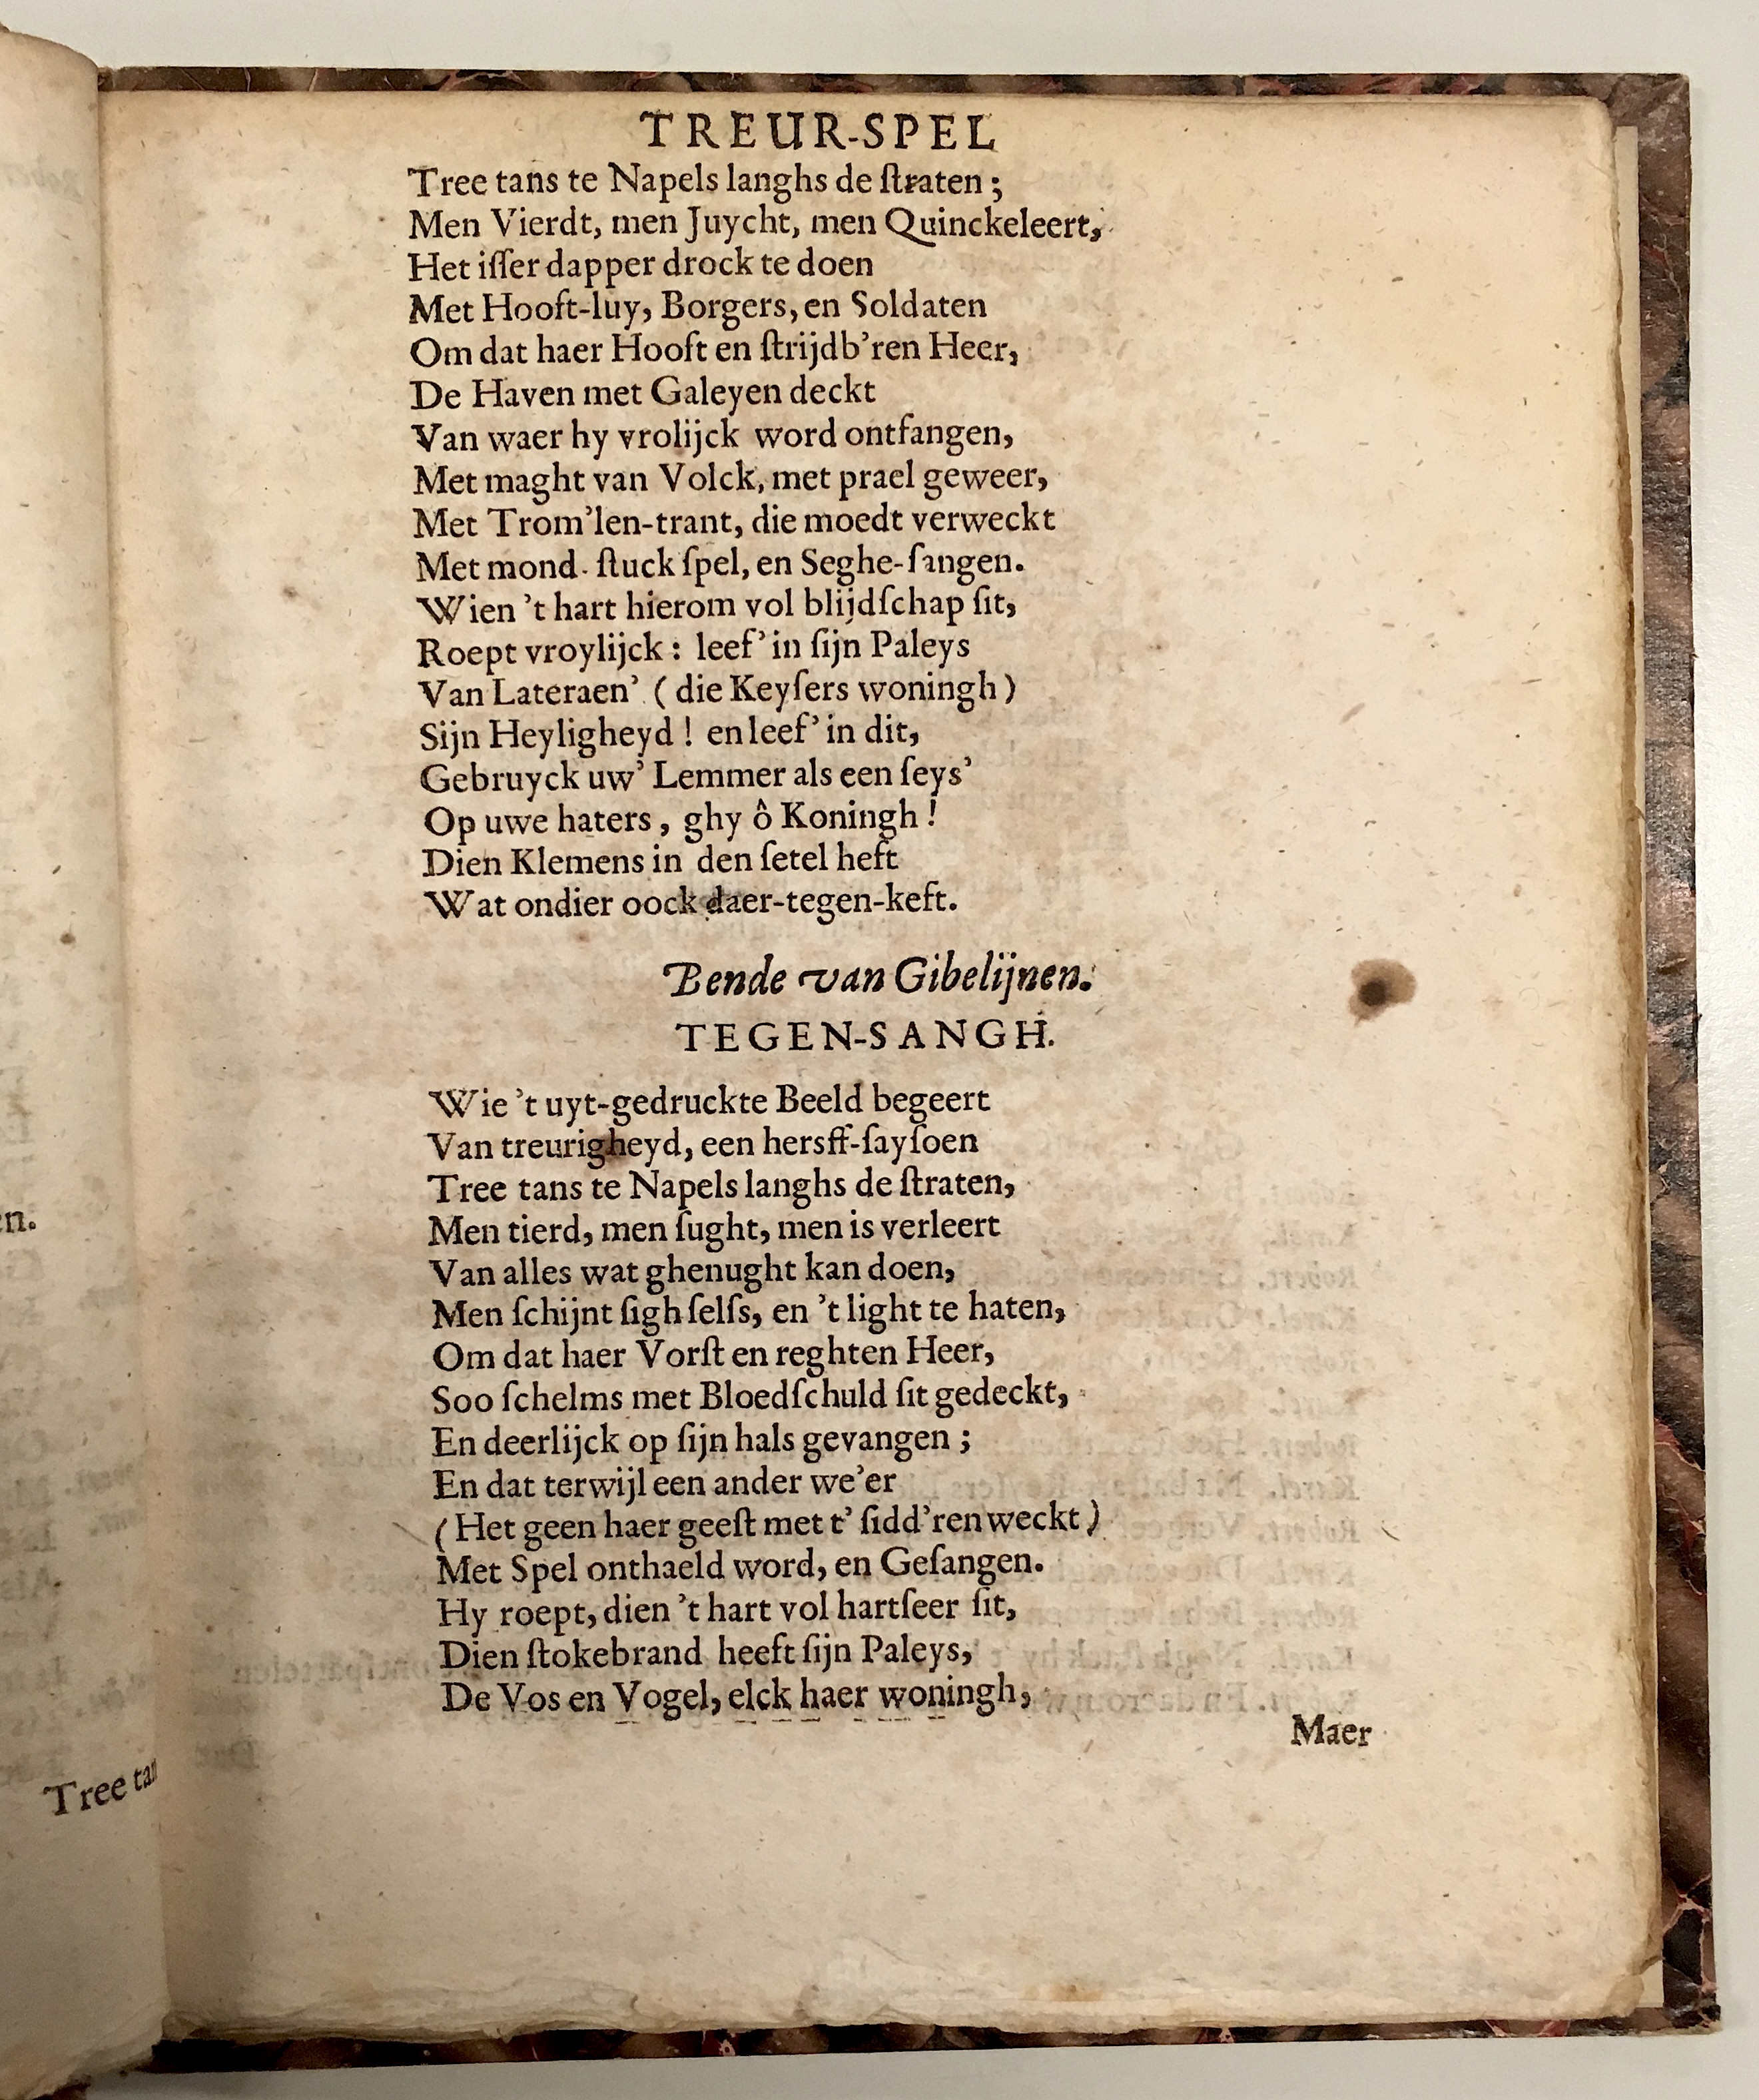 TREUR-SPEL
Tree tans te Napels langhs de ſtraten;
Men Vierdt, men Juycht, men Quinckeleert,
Het iſſer dapper drock te doen
Met Hooft-luy, Borgers, en Soldaten
Om dat haer Hooft en ſtrijdb'ren Heer,
De Haven met Galeyen deckt
Van waer hy vrolijck word ontfangen,
Met maght van Volck, met prael geweer,
Met Trom'len-trant, die moedt verweckt
Met mond-ſtuck ſpel, en Seghe-ſangen.
Wien 't hart hierom vol blijdſchap ſit,
Roept vroylijck: leef' in ſijn Paleys
Van Lateraen' (die Keyſers woningh)
Sijn Heyligheyd! en leef' in dit,
Gebruyck uw' Lemmer als een ſeys'
Op uwe haters, ghy ô Koningh!
Dien Klemens in den ſetel heft
Wat ondier oock daer-tegen-keft.
Bende van Gibelijnen.
TEGEN-SANGH.
Wie 't uyt-gedruckte Beeld begeert
Van treurigheyd, een hersff-ſayſoen
Tree tans te Napels langhs de ſtraten,
Men tierd, men ſught, men is verleert
Van alles wat ghenught kan doen,
Men ſchijnt ſigh ſelfs, en 't light te haten,
Om dat haer Vorſt en reghten Heer,
Soo ſchelms met Bloedſchuld ſit gedeckt,
En deerlijck op ſijn hals gevangen;
En dat terwijl een ander we'er
(Het geen haer geeſt met t' ſidd'ren weckt)
Met Spel onthaeld word, en Geſangen.
Hy roept, dien 't hart vol hartſeer ſit,
Dien ſtokebrand heeft ſijn Paleys,
De Vos en Vogel, elck haer woningh,
Maer
en.
Tree tan